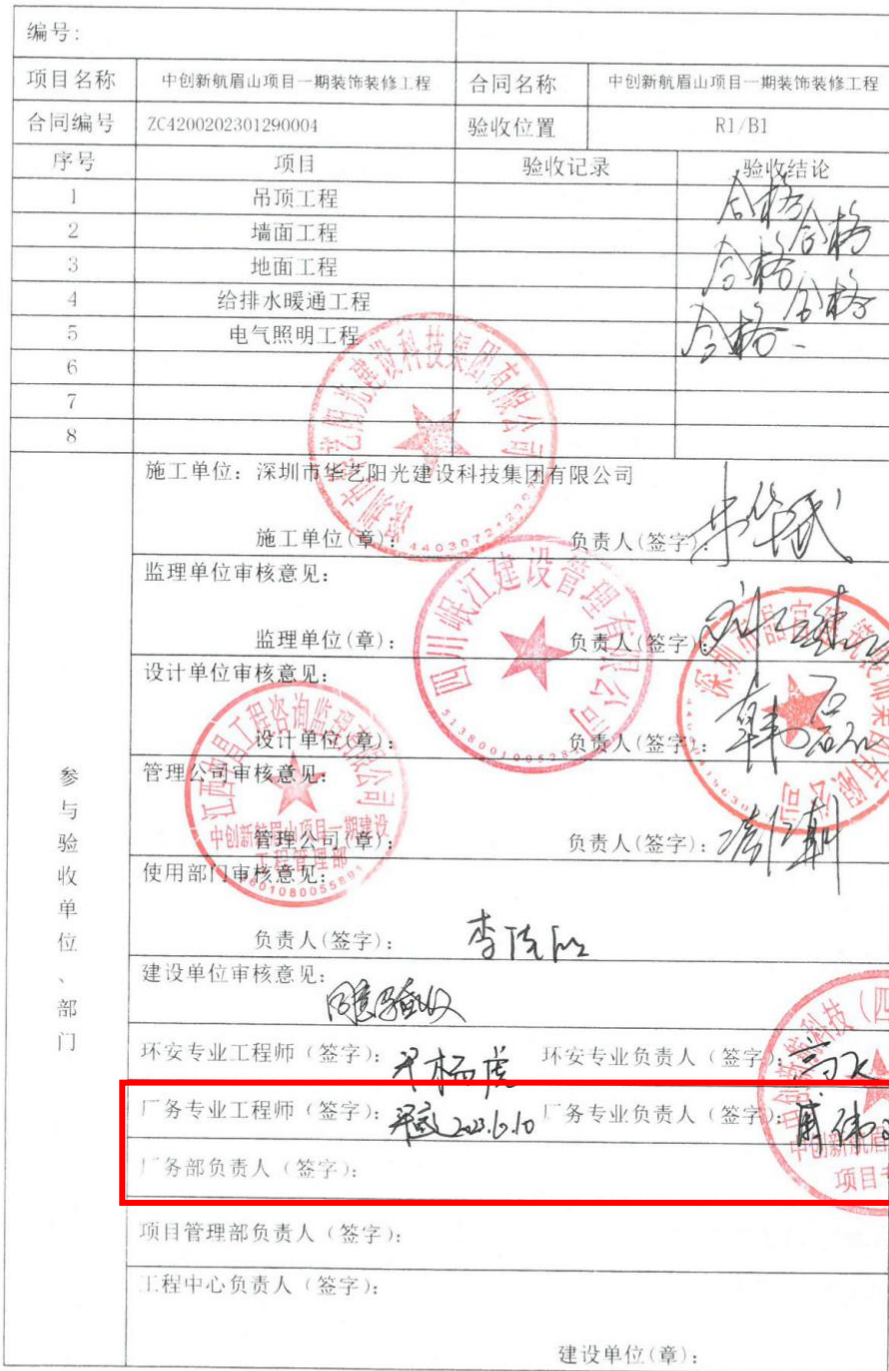 编号:
项目名称 中创新航眉山项目一期装饰装修工程 合同名称 中创新航眉山项目一期装饰装修工程
合同编号 ZC4200202301290004 验收位置 R1/B1
序号 项目 验收记录 验收结论
1 吊顶工程 合格
2 墙面工程 合格
3 地面工程 合格
4 给排水暖通工程 合格
5 电气照明工程 合格
6
7
8
参与验收单位、部门
施工单位: 深圳市华艺阳光建设科技集团有限公司
施工单位(章): 负责人(签字):
监理单位审核意见:
监理单位(章): 负责人(签字):
设计单位审核意见:
设计单位(章): 负责人(签字):
管理公司审核意见:
管理公司(章): 负责人(签字):
使用部门审核意见:
负责人(签字):
建设单位审核意见:
同意验收
环安专业工程师（签字): 环安专业负责人（签字):
厂务专业工程师（签字): 2023.6.10 厂务专业负责人（签字):
厂务部负责人（签字):
项目管理部负责人（签字):
工程中心负责人（签字):
建设单位(章):
四川岷江建设管理有限公司
中创新航眉山项目一期建设
工程管理部